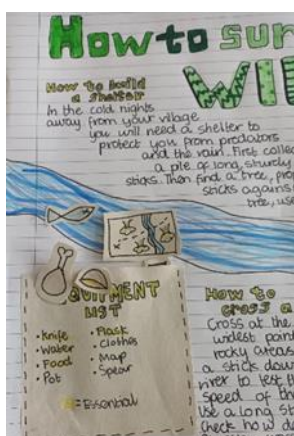 How to sur
WI
How to build
a shelter
In the cold nights
away from your village
you will need a shelter to
protect you from predators
and the rain. First collec
a pile of long, sturdy
sticks. Then find a tree, pro
sticks agains
tree, use
EQUIPMENT
LIST
• Knife
• Water
• Food
• Pot
• Flask
• Clothes
• Map
• Spear
= Essential
How to
cross a
Cross at the
widest point
rocky areas
a stick down
river to test th
speed of th
Use a long st
check how d